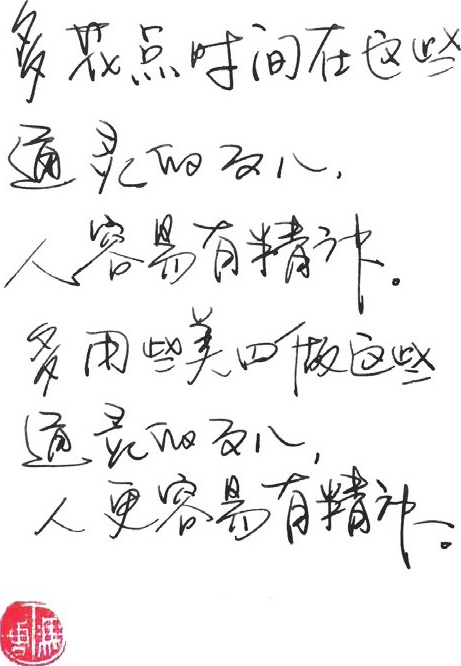 多花点时间在这些
通灵的儿，
人容易有精神。
多用些美做这些
通灵的儿，
人更容易有精神。